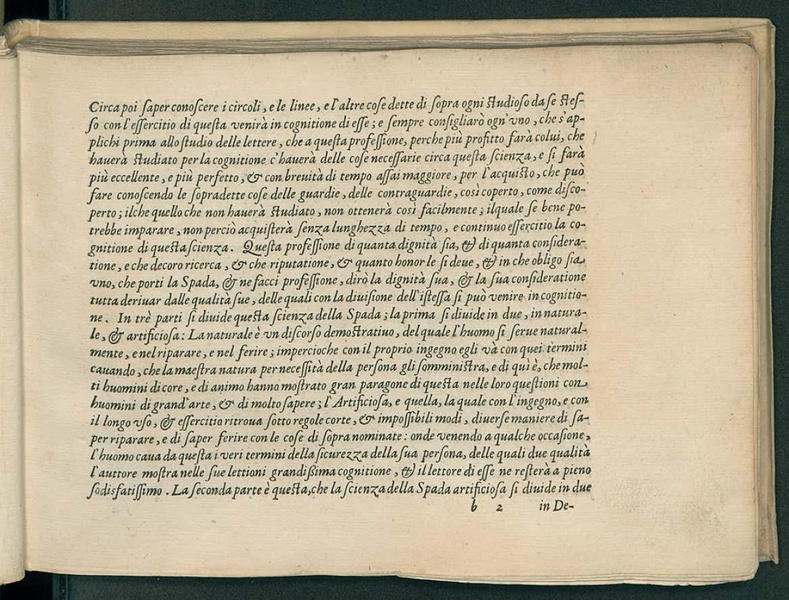 Circa poi ſaper conoſcere i circoli, e le linee, e l'altre coſe dette di ſopra ogni ſtudioſo da ſe ſteſ-
ſo con l'eſſercitio di queſta venirà in cognitione di eſſe; e ſempre conſigliarò ogn'vno, che s'ap-
plichi prima allo ſtudio delle lettere, che a queſta profeſſione, perche più profitto farà colui, che
hauerà ſtudiato per la cognitione c'hauerà delle coſe neceſſarie circa queſta ſcienza, e ſi farà
più eccellente, e più perfetto, & con breuità di tempo aſſai maggiore, per l'acquiſto, che può
fare conoſcendo le ſopradette coſe delle guardie, delle contraguardie, così coperto, come diſco-
perto; ilche quello che non hauerà ſtudiato, non ottenerà così facilmente; ilquale ſe bene po-
trebbe imparare, non perciò acquiſterà ſenza lunghezza di tempo, e continuo eſſercitio la co-
gnitione di queſta ſcienza. Queſta profeſſione di quanta dignità ſia, & di quanta conſidera-
tione, e che decoro ricerca, & che riputatione, & quanto honor le ſi deue, & in che obligo ſia
vno, che porti la Spada, & ne facci profeſſione, dirò la dignità ſua, & la ſua conſideratione
tutta deriuar dalle qualità ſue, delle quali con la diuiſione dell'iſteſſa ſi può venire in cognitio-
ne. In trè parti ſi diuide queſta ſcienza della Spada; la prima ſi diuide in due, in natura-
le, & artificioſa: La naturale è vn diſcorſo demoſtratiuo, del quale l'huomo ſi ſerue natural-
mente, e nel riparare, e nel ferire; impercioche con il proprio ingegno egli và con quei termini
cauando, che la maeſtra natura per neceſſità della perſona gli ſomminiſtra, e di quì è, che mol-
ti huomini di core, e di animo hanno moſtrato gran paragone di queſta nelle loro queſtioni con
huomini di grand'arte, & di molto ſapere; l'Artificioſa, e quella, la quale con l'ingegno, e con
il longo vſo, & eſſercitio ritroua ſotto regole corte, & impoſſibili modi, diuerſe maniere di ſa-
per riparare, e di ſaper ferire con le coſe di ſopra nominate: onde venendo a qualche occaſione,
l'huomo caua da queſta i veri termini della ſicurezza della ſua perſona, delle quali due qualità
l'auttore moſtra nelle ſue lettioni grandißima cognitione, & il lettore di eſſe ne reſterà a pieno
ſodisfatiſſimo. La ſeconda parte è queſta, che la ſcienza della Spada artificioſa ſi diuide in due
b 2 in De-